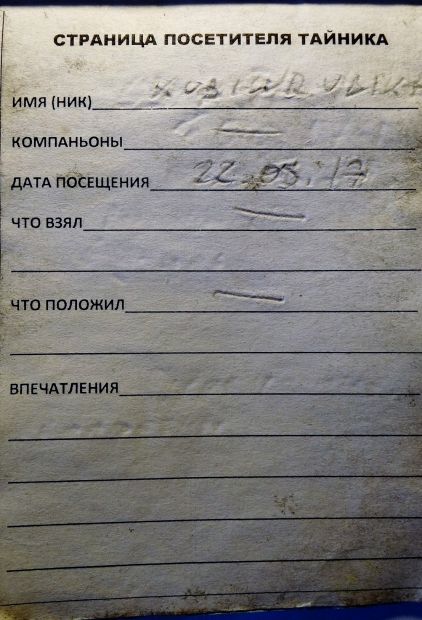 СТРАНИЦА ПОСЕТИТЕЛЯ ТАЙНИКА
ИМЯ (НИК)
КОМПАНЬОНЫ —
ДАТА ПОСЕЩЕНИЯ 22.05.17
ЧТО ВЗЯЛ —
ЧТО ПОЛОЖИЛ —
ВПЕЧАТЛЕНИЯ